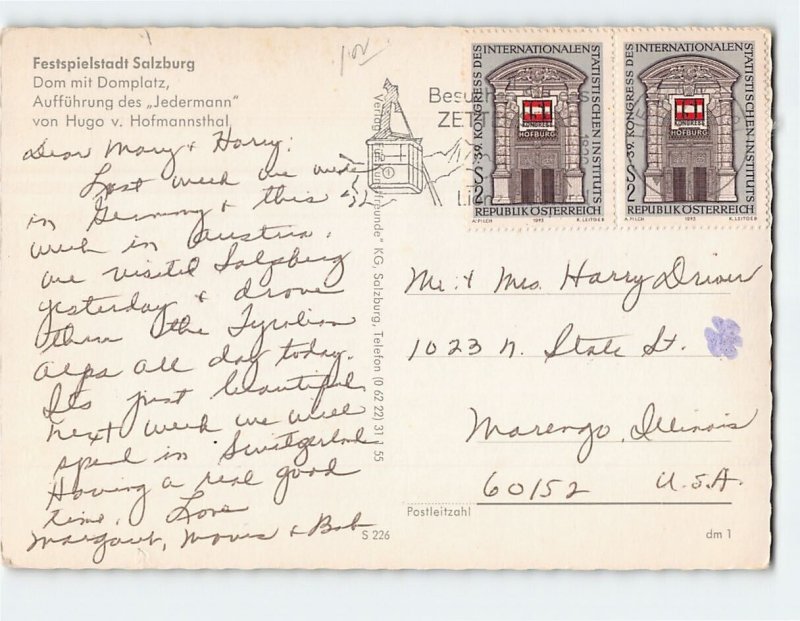 Festspielstadt Salzburg
Dom mit Domplatz,
Aufführung des „Jedermann"
von Hugo v. Hofmannsthal
Dear Mary & Harry:
Last week we were
in Germany & this
week in Austria.
We visited Salzburg
yesterday & drove
thru the Tyrolian
Alps all day today.
Its just beautiful.
Next week we will
spend in Switzerland
Having a real good
time. Love
Margaret, & Bob
S 226
KG, Salzburg, Telefon (0 62 22) 31 1 55
39. KONGRESS DES INTERNATIONALEN STATISTISCHEN INSTITUTS
KONGRESS
HOFBURG
S 2
REPUBLIK ÖSTERREICH
A. PILCH 1973 K. LEITGEB
39. KONGRESS DES INTERNATIONALEN STATISTISCHEN INSTITUTS
KONGRESS
HOFBURG
S 2
REPUBLIK ÖSTERREICH
A. PILCH 1973 K. LEITGEB
Mr. & Mrs. Harry Driver
1023 N. State St.
Marengo, Illinois
60152 U.S.A.
Postleitzahl
dm 1